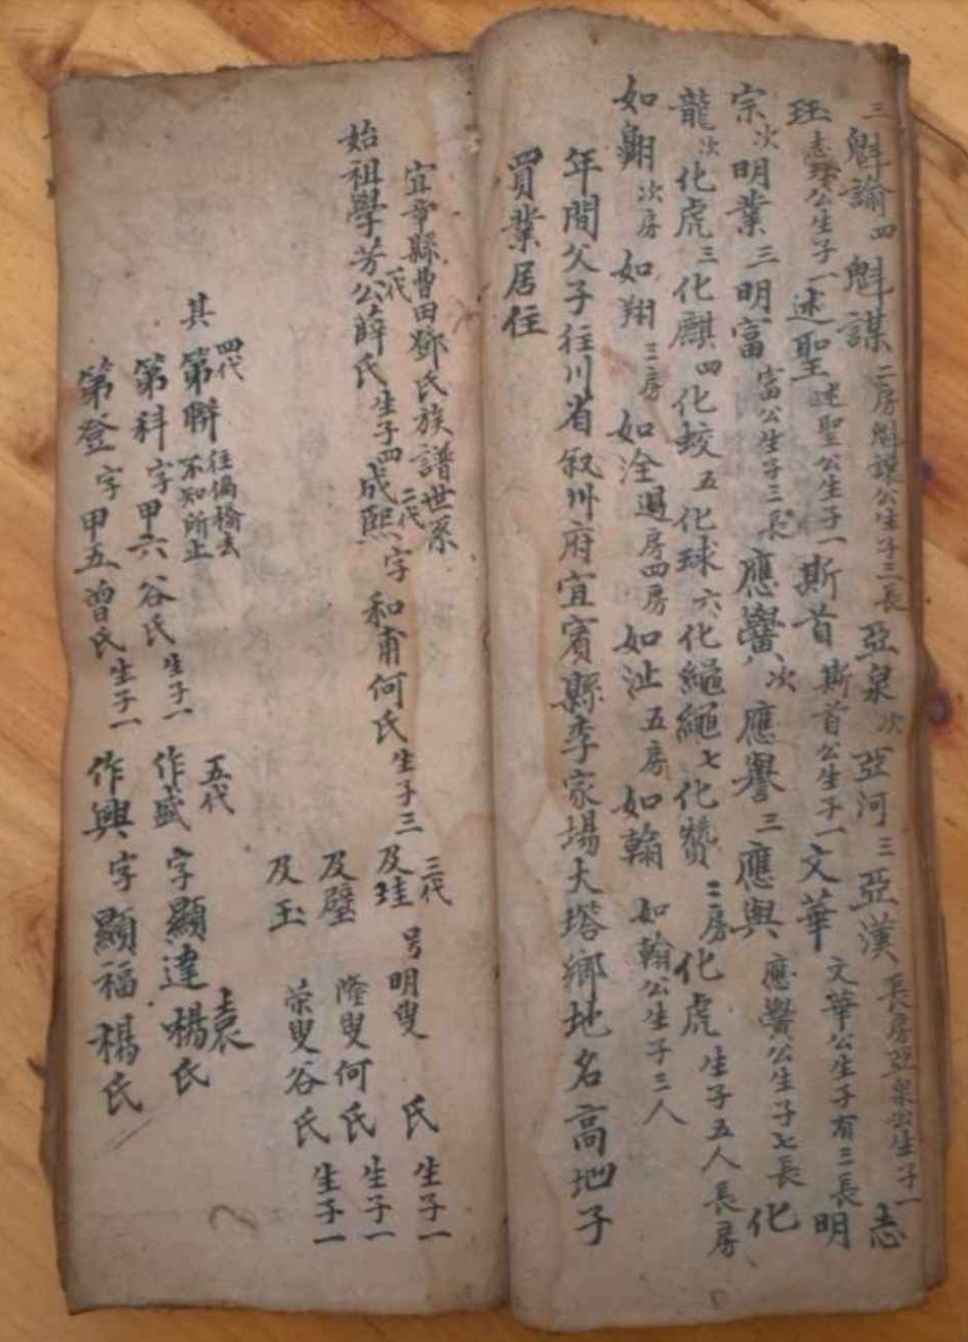 三魁諭四魁謀二房魁謀公生子三長亞泉次亞河三亞漢長房亞泉公生子一志
珏志珏公生子一述聖述聖公生子一斯首斯首公生子一文華文華公生子有三長明
宗次明業三明富富公生子三長應黌次應譽三應與應黌公生子七長化
龍次化虎三化麒四化蛟五化球六化繩繩七化贊二房化虎生子五人長房
如翱次房如翔三房如淦過房四房如沚五房如翰如翰公生子三人
年間父子往川省叙州府宜賓縣李家場大塔鄉地名高地子
買業居住
宜章縣曹田鄧氏族譜世系
始祖學芳公薛氏生子四二代成熙字和甫何氏生子三
三代及珪号明叟 氏生子一
及璧 隆叟何氏生子一
及玉 荣叟谷氏生子一
四代 五代
其第聯往偏橋去不知所止
第科字甲六谷氏生子一作盛字顯達楊氏 袁
第登字甲五曾氏生子一作興字顯福楊氏